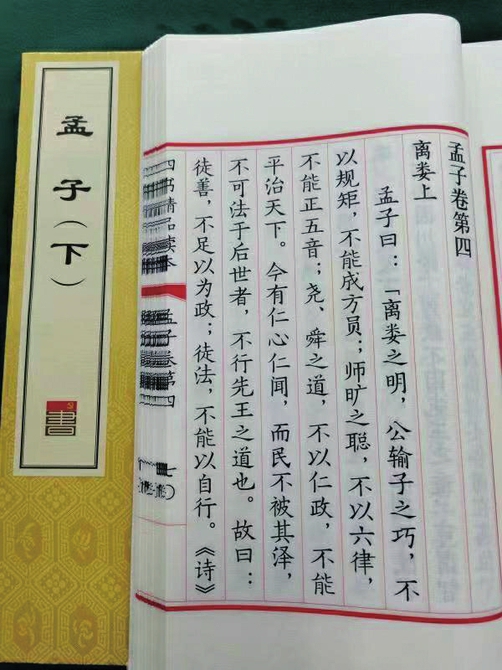 孟子卷第四
离娄上
孟子曰：「离娄之明，公输子之巧，不
以规矩，不能成方员；师旷之聪，不以六律，
不能正五音；尧、舜之道，不以仁政，不能
平治天下。今有仁心仁闻，而民不被其泽，
不可法于后世者，不行先王之道也。故曰：
徒善，不足以为政；徒法，不能以自行。《诗》
四书精品读本
孟子卷第四
孟子（下）
書